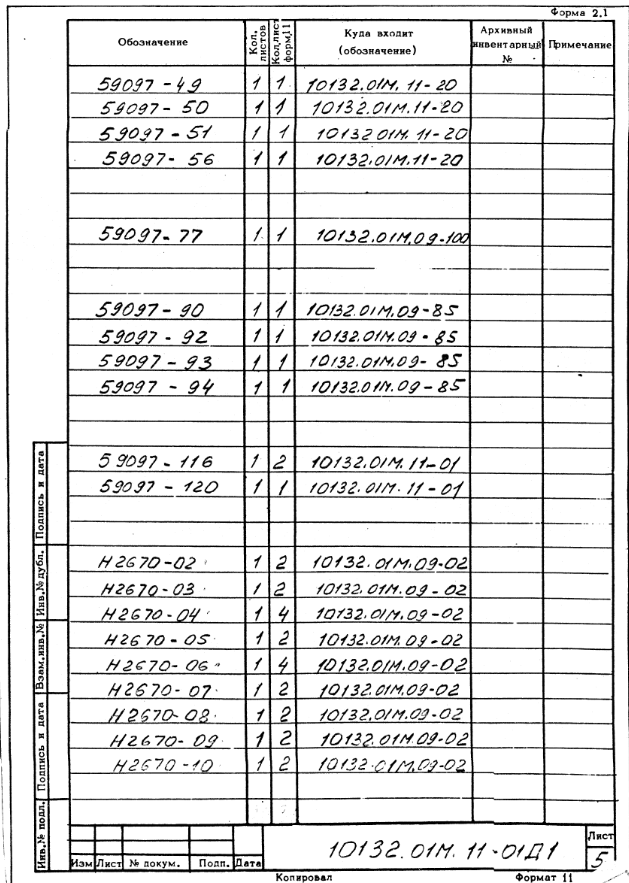 Форма 2.1
Обозначение Кол. листов Кол.лист форм.11 Куда входит (обозначение) Архивный инвентарный № Примечание
59097 - 49 1 1 10132.01М. 11-20
59097 - 50 1 1 10132.01М.11-20
59097 - 51 1 1 10132 01М. 11-20
59097 - 56 1 1 10132.01М.11-20
59097- 77 1 1 10132.01М.09-100
59097 - 90 1 1 10132.01М.09-85
59097 - 92 1 1 10132.01М.09 - 85
59097 - 93 1 1 10132.01М.09- 85
59097 - 94 1 1 10132.01М.09 - 85
59097 - 116 1 2 10132.01М. 11-01
59097 - 120 1 1 10132.01М. 11 - 01
Н2670-02 1 2 10132. 01М.09-02
Н2670-03 1 2 10132. 01М.09 - 02
Н2670-04 1 4 10132. 01М.09 - 02
Н2670 - 05 1 2 10132. 01М.09 - 02
Н2670- 06 1 4 10132.01М.09-02
Н2670- 07 1 2 10132.01М.09-02
Н2670- 08 1 2 10132.01М.09-02
Н2670- 09 1 2 10132.01М.09-02
Н2670 -10 1 2 10132.01М.09-02
Инв.№ подл. Подпись и дата Взам.инв.№ Инв.№ дубл. Подпись и дата
Изм Лист № докум. Подп. Дата
10132. 01М. 11-01Д1
Лист
5
Копировал Формат 11